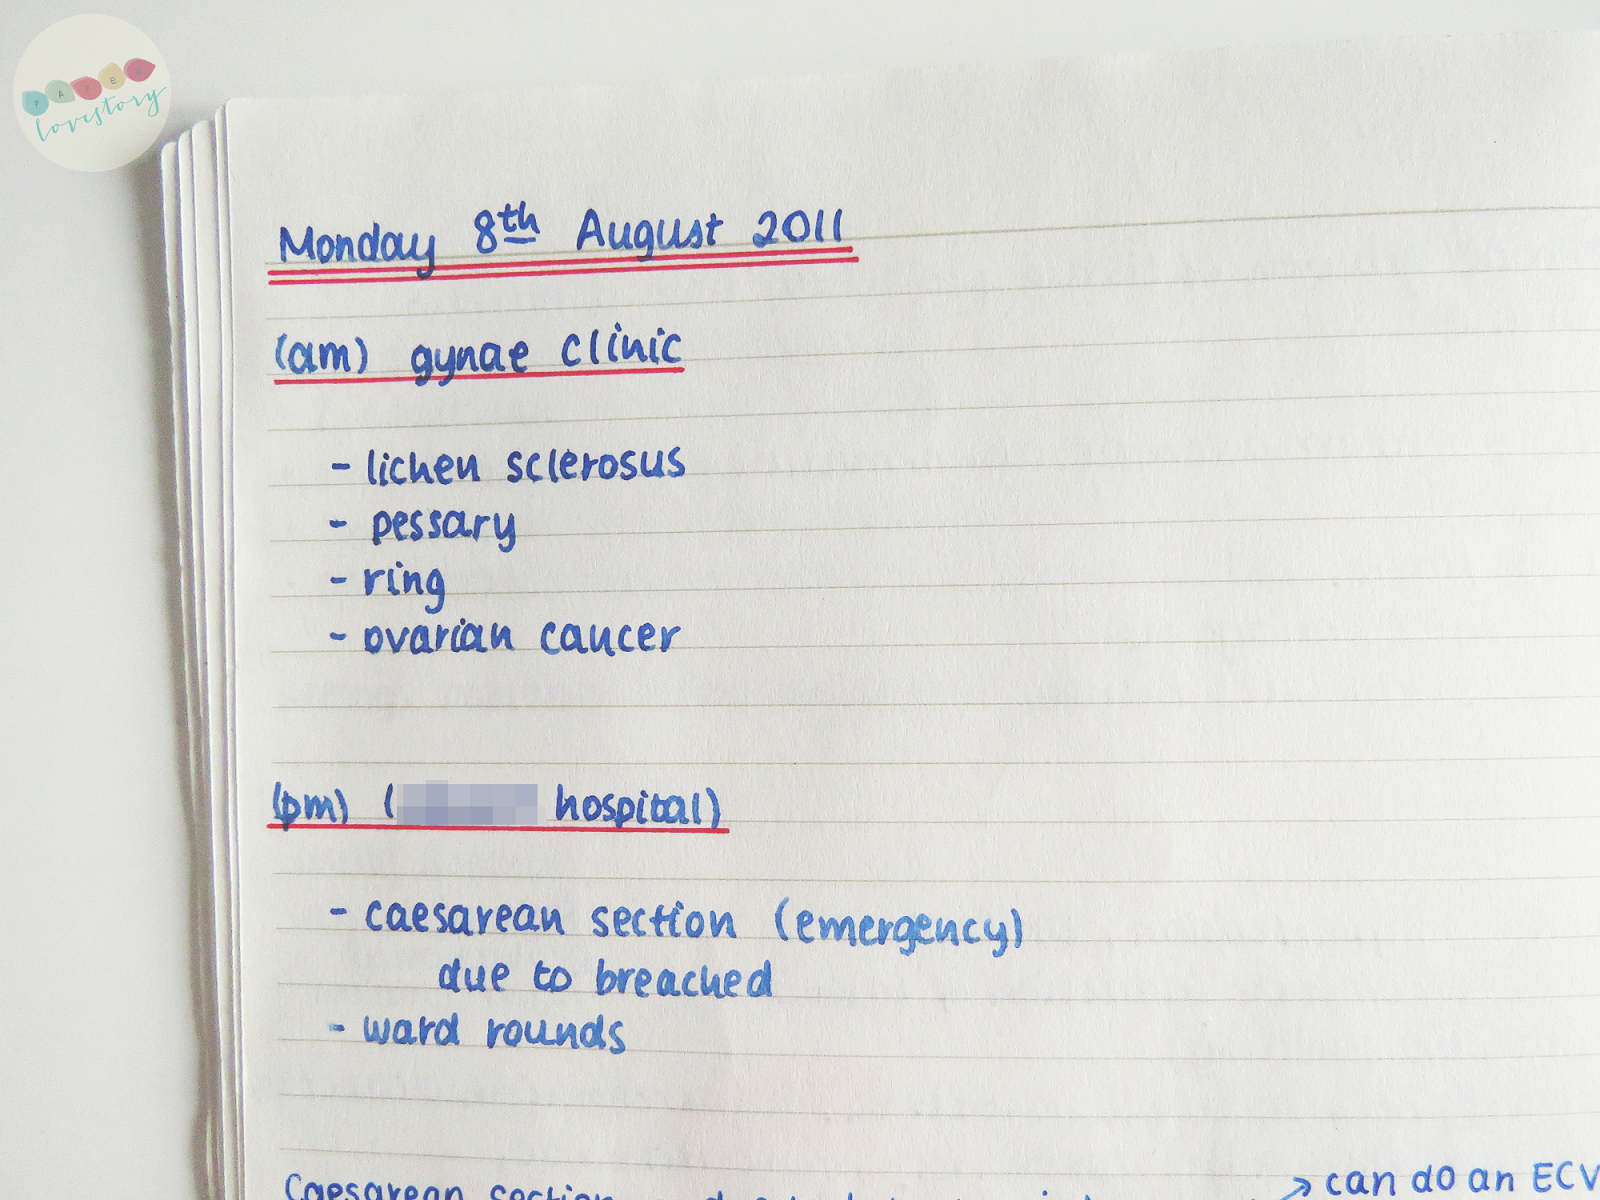 PAPER
lovestory
Monday 8th August 2011
(am) gynae clinic
- lichen sclerosus
- pessary
- ring
- ovarian cancer
(pm) ( hospital)
- caesarean section (emergency)
due to breached
- ward rounds
Caesarean section
→ can do an ECV